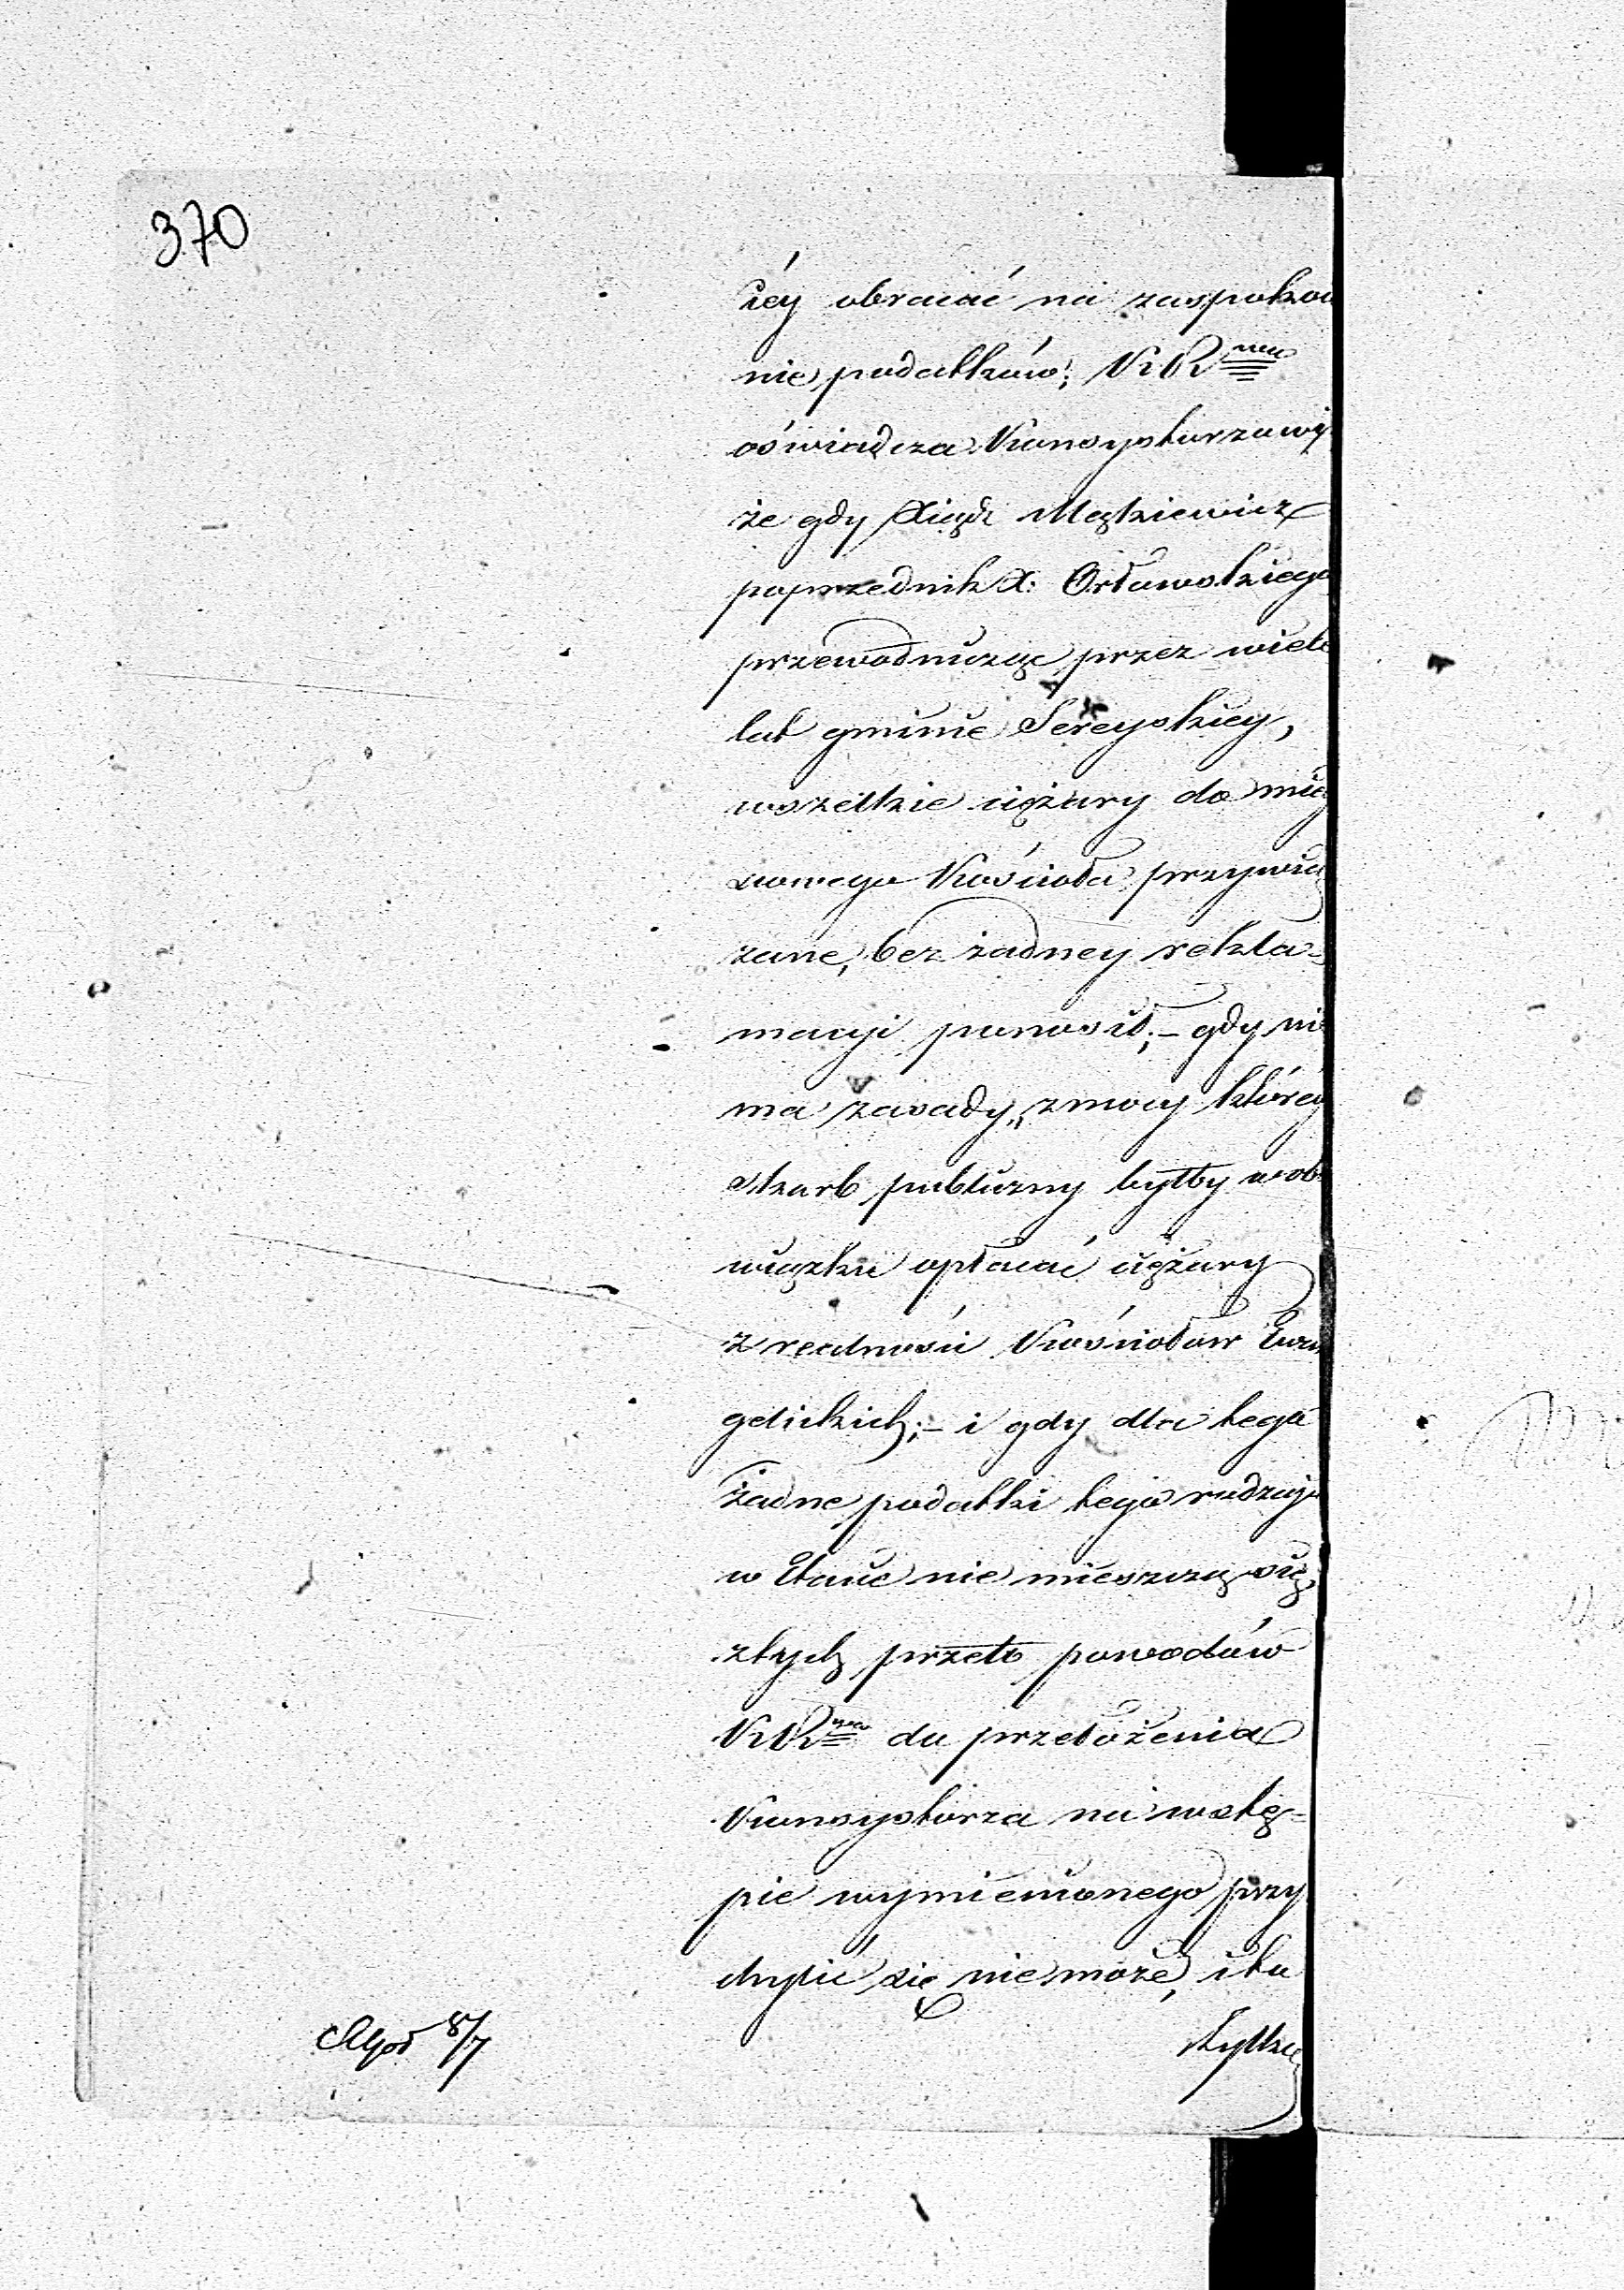 370
céy obracać na zaspokoi
nie podatków; KR
oświadcza Konsystorzowi,
że gdy Xiądz Mackiewicz
poprzednik X: Orłowskiego
przewodnicząc przez wiele
lat gminie Sereyskiey,
wszelkie ciężary do miey
scowego Kościoła przywią
zane, bez żadney rekla-
macyi ponosił;– gdy nie
ma zasady, z mocy któréy
skarb publiczny byłby w obo
wiązku opłacać ciężary
z realności Kościołów Ewan
gelickich;– i gdy dla tego
żadne podatki tego rodzaju
w Etacie nie mieszczą się,
z tych przeto powodów
KR do przełożenia
Konsystorza na wstę-
pie wymienionego przy
chylić się nie może, i ta